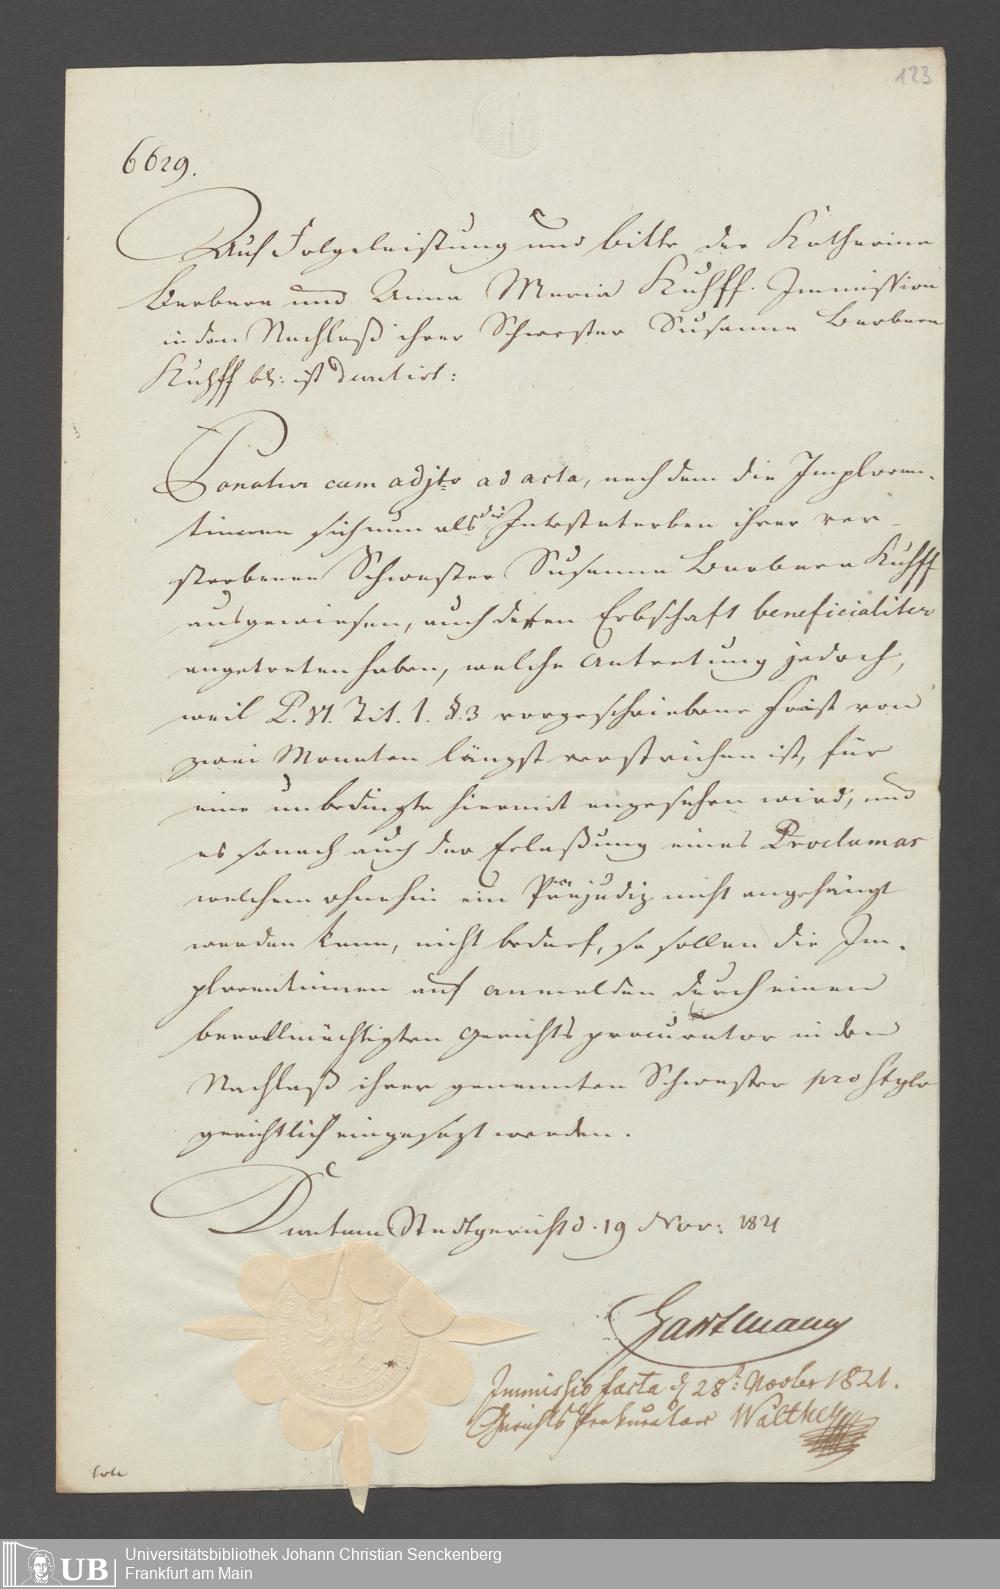 123
6629.
Auf Folgeleistung und bitte der Katharina
Barbara und Anna Maria Kuhff. Immission
in den Nachlaß ihrer Schwester Susanna Barbara
Kuhff btr: ist Decretirt:
Ponatur cum adjto ad acta, nach dem die Imploran-
tinnen sich nun als die Intestaterben ihrer ver-
storbenen Schwester Susanna Barbara Kuhff
ausgewiesen, auch dessen Erbschaft beneficialiter
angetreten haben, welche Antretung jedoch,
weil P. VI. Tit. 1. §. 3 vorgeschriebene Frist von
zwei Monaten längst verstrichen ist, für
eine unbedingte hiermit angesehen wird, und
es sonach auch der Erlaßung eines Proclamas
welchem ohnehin ein Präjudiz nicht angehängt
werden kann, nicht bedarf, so sollen die Im-
plorantinnen auf Anmelden durch einen
bevollmächtigten Gerichtsprocurator in den
Nachlaß ihrer genannten Schwester pro stylo
gerichtlich eingesezt werden.
Decretum Stadtgericht d. 19 Nov: 1821
Hartmann
Immissio facta d 28t: Novber 1821.
Gerichts Prokurator Walther
UB
Universitätsbibliothek Johann Christian Senckenberg
Frankfurt am Main